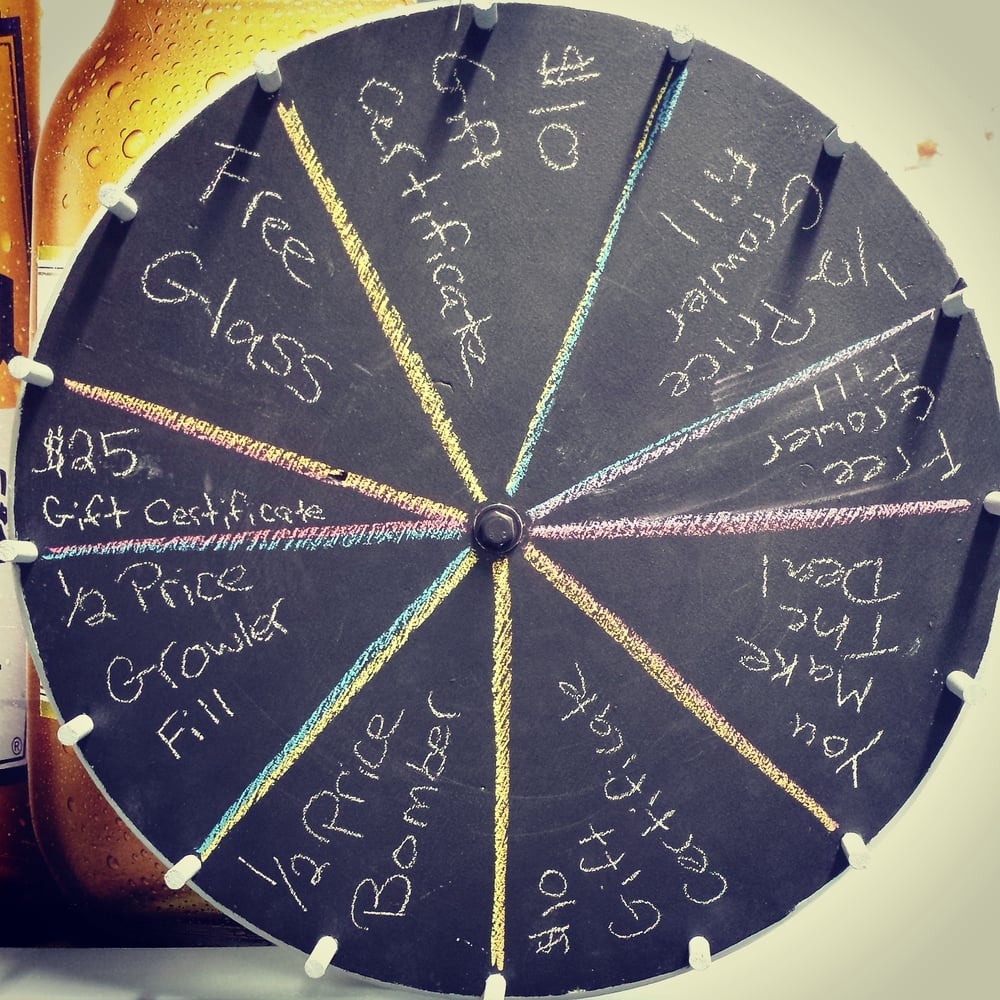 $10
Gift
Certificate
1/2 Price
Growler
Fill
Free
Growler
Fill
You
Make
The
Deal
$10
Gift
Certificate
1/2 Price
Bomber
1/2 Price
Growler
Fill
$25
Gift Certificate
Free
Glass
®